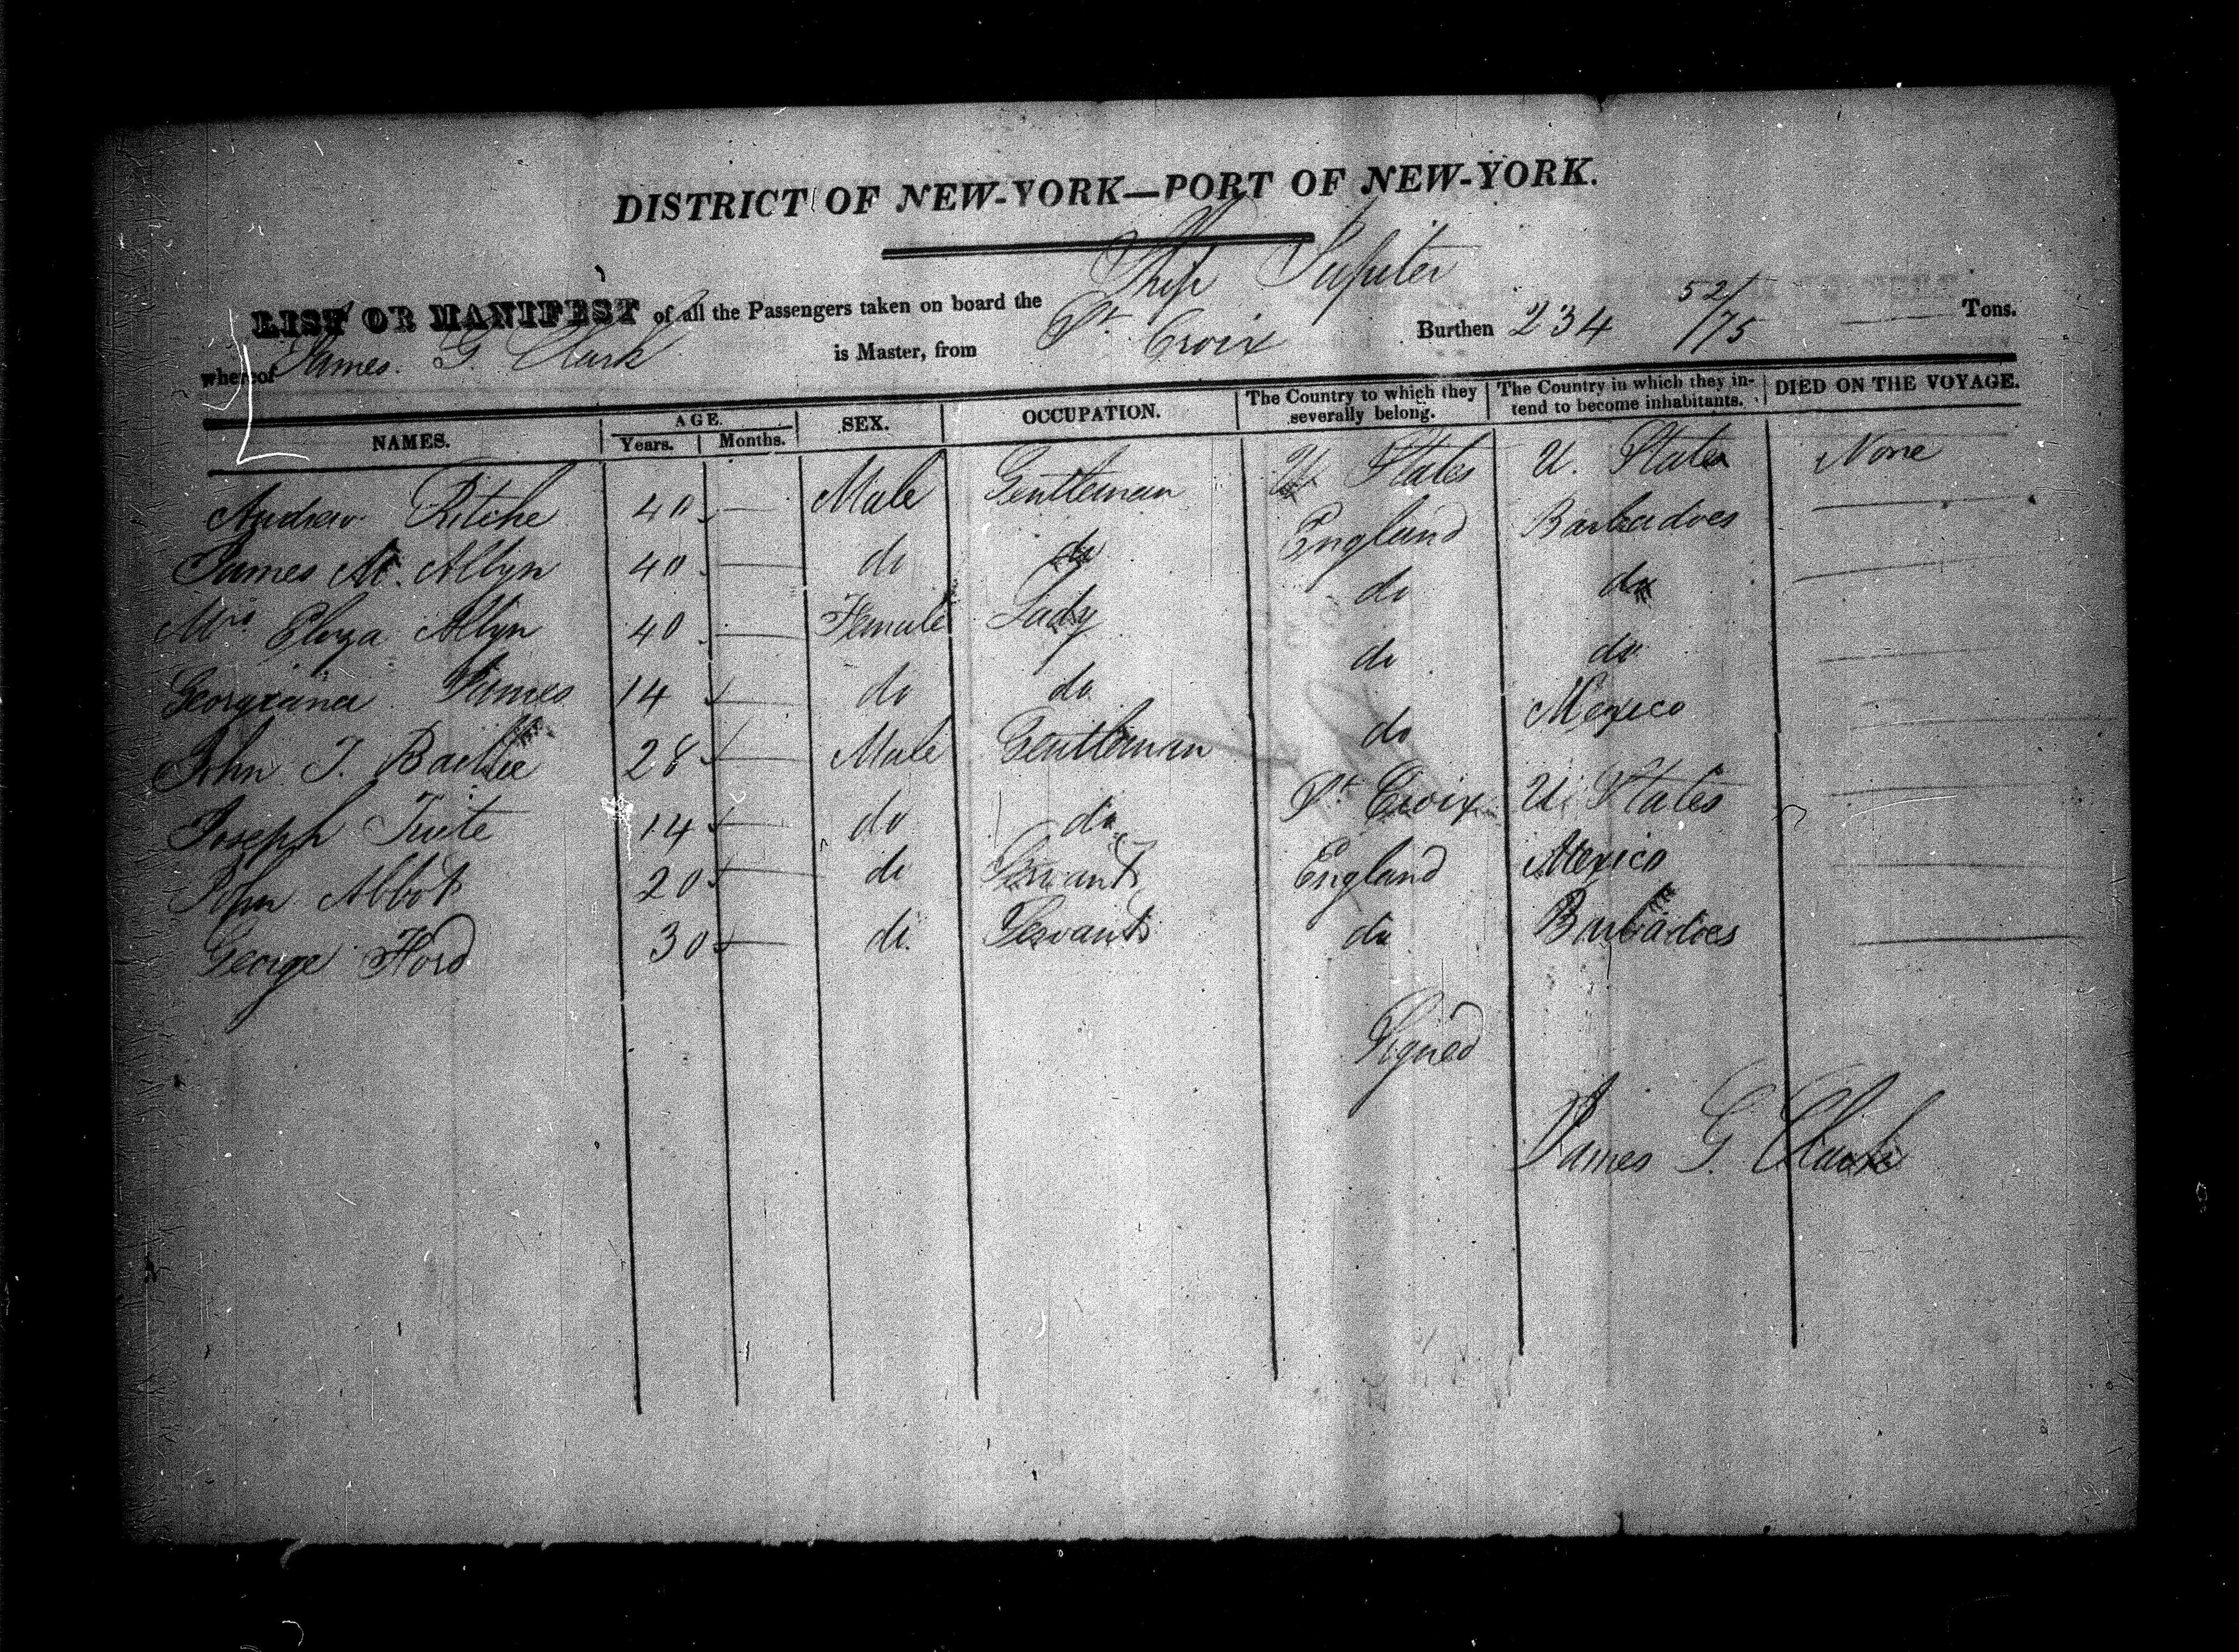 DISTRICT OF NEW-YORK—PORT OF NEW-YORK.
LIST OR MANIFEST of all the Passengers taken on board the Ship Jupiter
whereof James G. Clark is Master, from St Croix Burthen 234 52/75 Tons.
NAMES. AGE. Years. Months. SEX. OCCUPATION. The Country to which they severally belong. The Country in which they intend to become inhabitants. DIED ON THE VOYAGE.
Andrew Ritche 40 — Male Gentleman U. States U. States None
James Allyn 40 — do do England Barbadoes —
Mrs Eliza Allyn 40 — Female Lady do do —
Georgiana James 14 — do do do do —
John T. Baillie 28 — Male Gentleman do Mexico —
Joseph Tuite 14 — do do St Croix U. States —
John Abbot 20 — do Servant England Mexico —
George Ford 30 — do Servant do Barbadoes —
Signed
James G. Clark